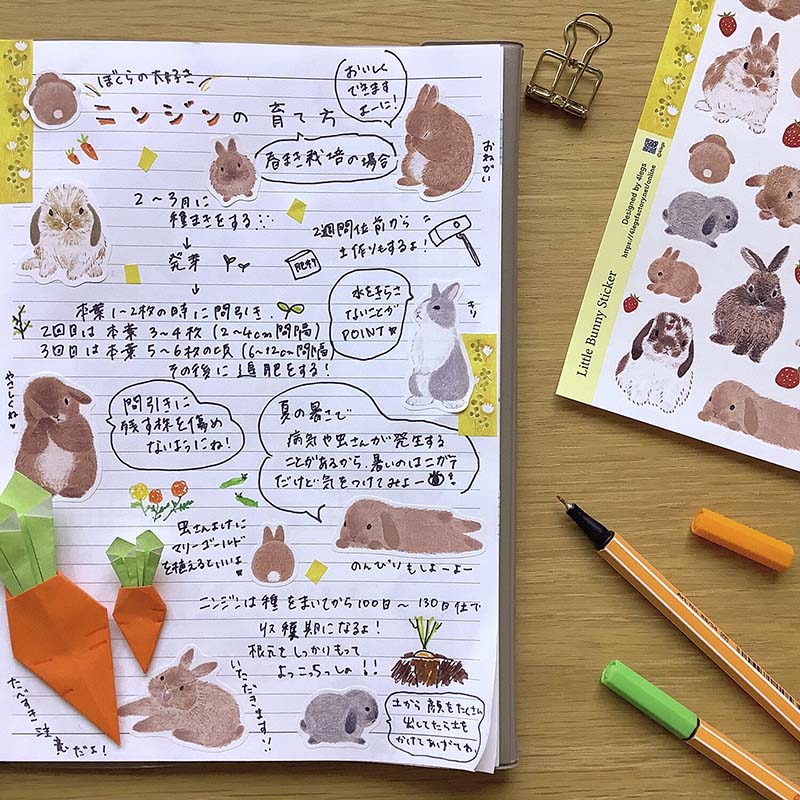 ぼくらの大好き
ニンジンの育て方
おいしく
できます
よーに!
おねがい
春まき栽培の場合
2〜3月に
種まきをする…
↓
発芽
↓
2週間位前から
土作りもするよ!
肥料
本葉1〜2枚の時に間引き.
2回目は本葉3〜4枚(2〜4cm間隔)
3回目は本葉5〜6枚の頃(6〜12cm間隔
その後に追肥をする!
水をきらさ
ないことが
POINT
キリ
やさしくね
間引きに
残す株を傷め
ないようにね!
夏の暑さで
病気や虫さんが発生する
ことがあるから、暑いのはニガテ
だけど気をつけてみよー
のんびりもしよーよー
虫さんよけに
マリーゴールド
を植えるといいよ
ニンジンは種をまいてから100日〜130日位で
収穫期になるよ!
根元をしっかりもって
よっこらっしょ!!
いただきます!!
たべすぎ
注意だよ!
土から顔をたくさん
出してたら土を
かけてあげてね
Little Bunny Sticker
Designed by 4legs
https://4legsfactory.net/online